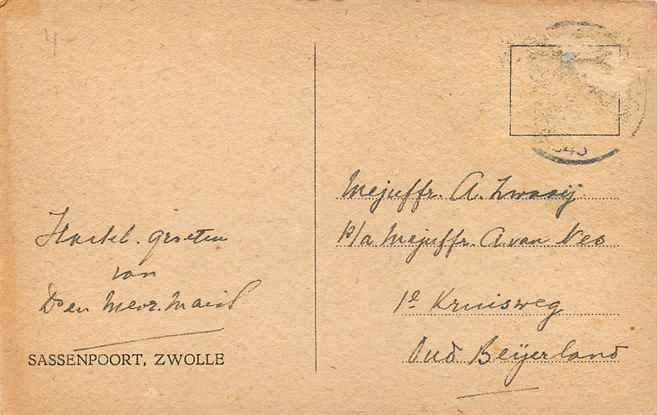 4-
Hartel. groeten
van
D en Mevr.
SASSENPOORT, ZWOLLE
Mejuffr. A. Zwaaij
p/a Mejuffr. A. van Nes
1e Kruisweg
Oud Beijerland